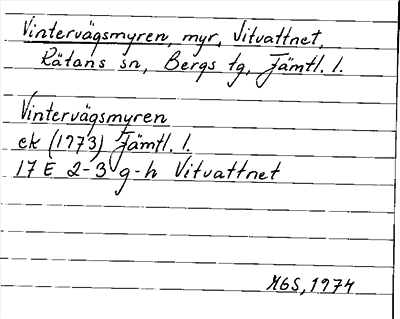 Vintervägsmyren, myr, Vitvattnet,
Rätans sn, Bergs tg, Jämtl. l.
Vintervägsmyren
ek (1973) Jämtl. l.
17 E 2-3 g-h Vitvattnet
MGS, 1974